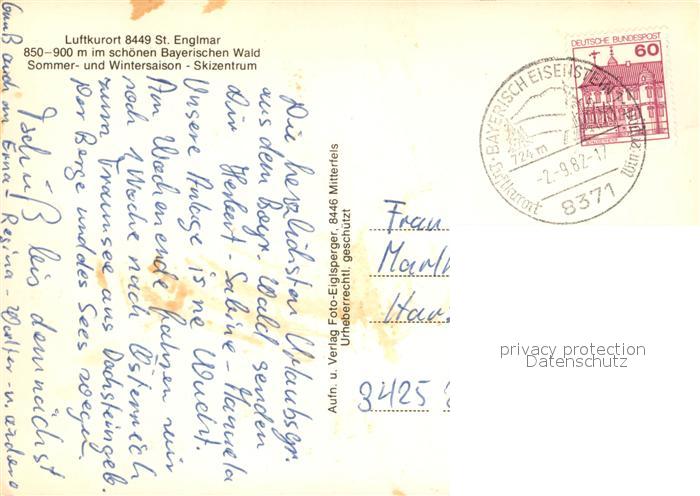 Luftkurort 8449 St. Englmar
850–900 m im schönen Bayerischen Wald
Sommer- und Wintersaison - Skizentrum
Die herzlichsten Urlaubsgr.
aus dem Bayr. Wald senden
Dir Herbert - Sabine - Manuela
Unsere Anlage is ne Wucht.
Am Wochenende fahren wir
noch 1 Woche nach Österreich
zum Traunsee aus Dachsteingeb.
Der Berge und des Sees wegen.
Tschüß bis demnächst
Gruß auch an Erna - Regina - Walter - u. andere
Aufn. u. Verlag Foto-Eiglsperger, 8446 Mitterfels
Urheberrechtl. geschützt
DEUTSCHE BUNDESPOST
60
BAYERISCH EISENSTEIN
724 m
-2.-9.82.-17
Luftkurort
8371
Frau
Har
3425
privacy protection
Datenschutz